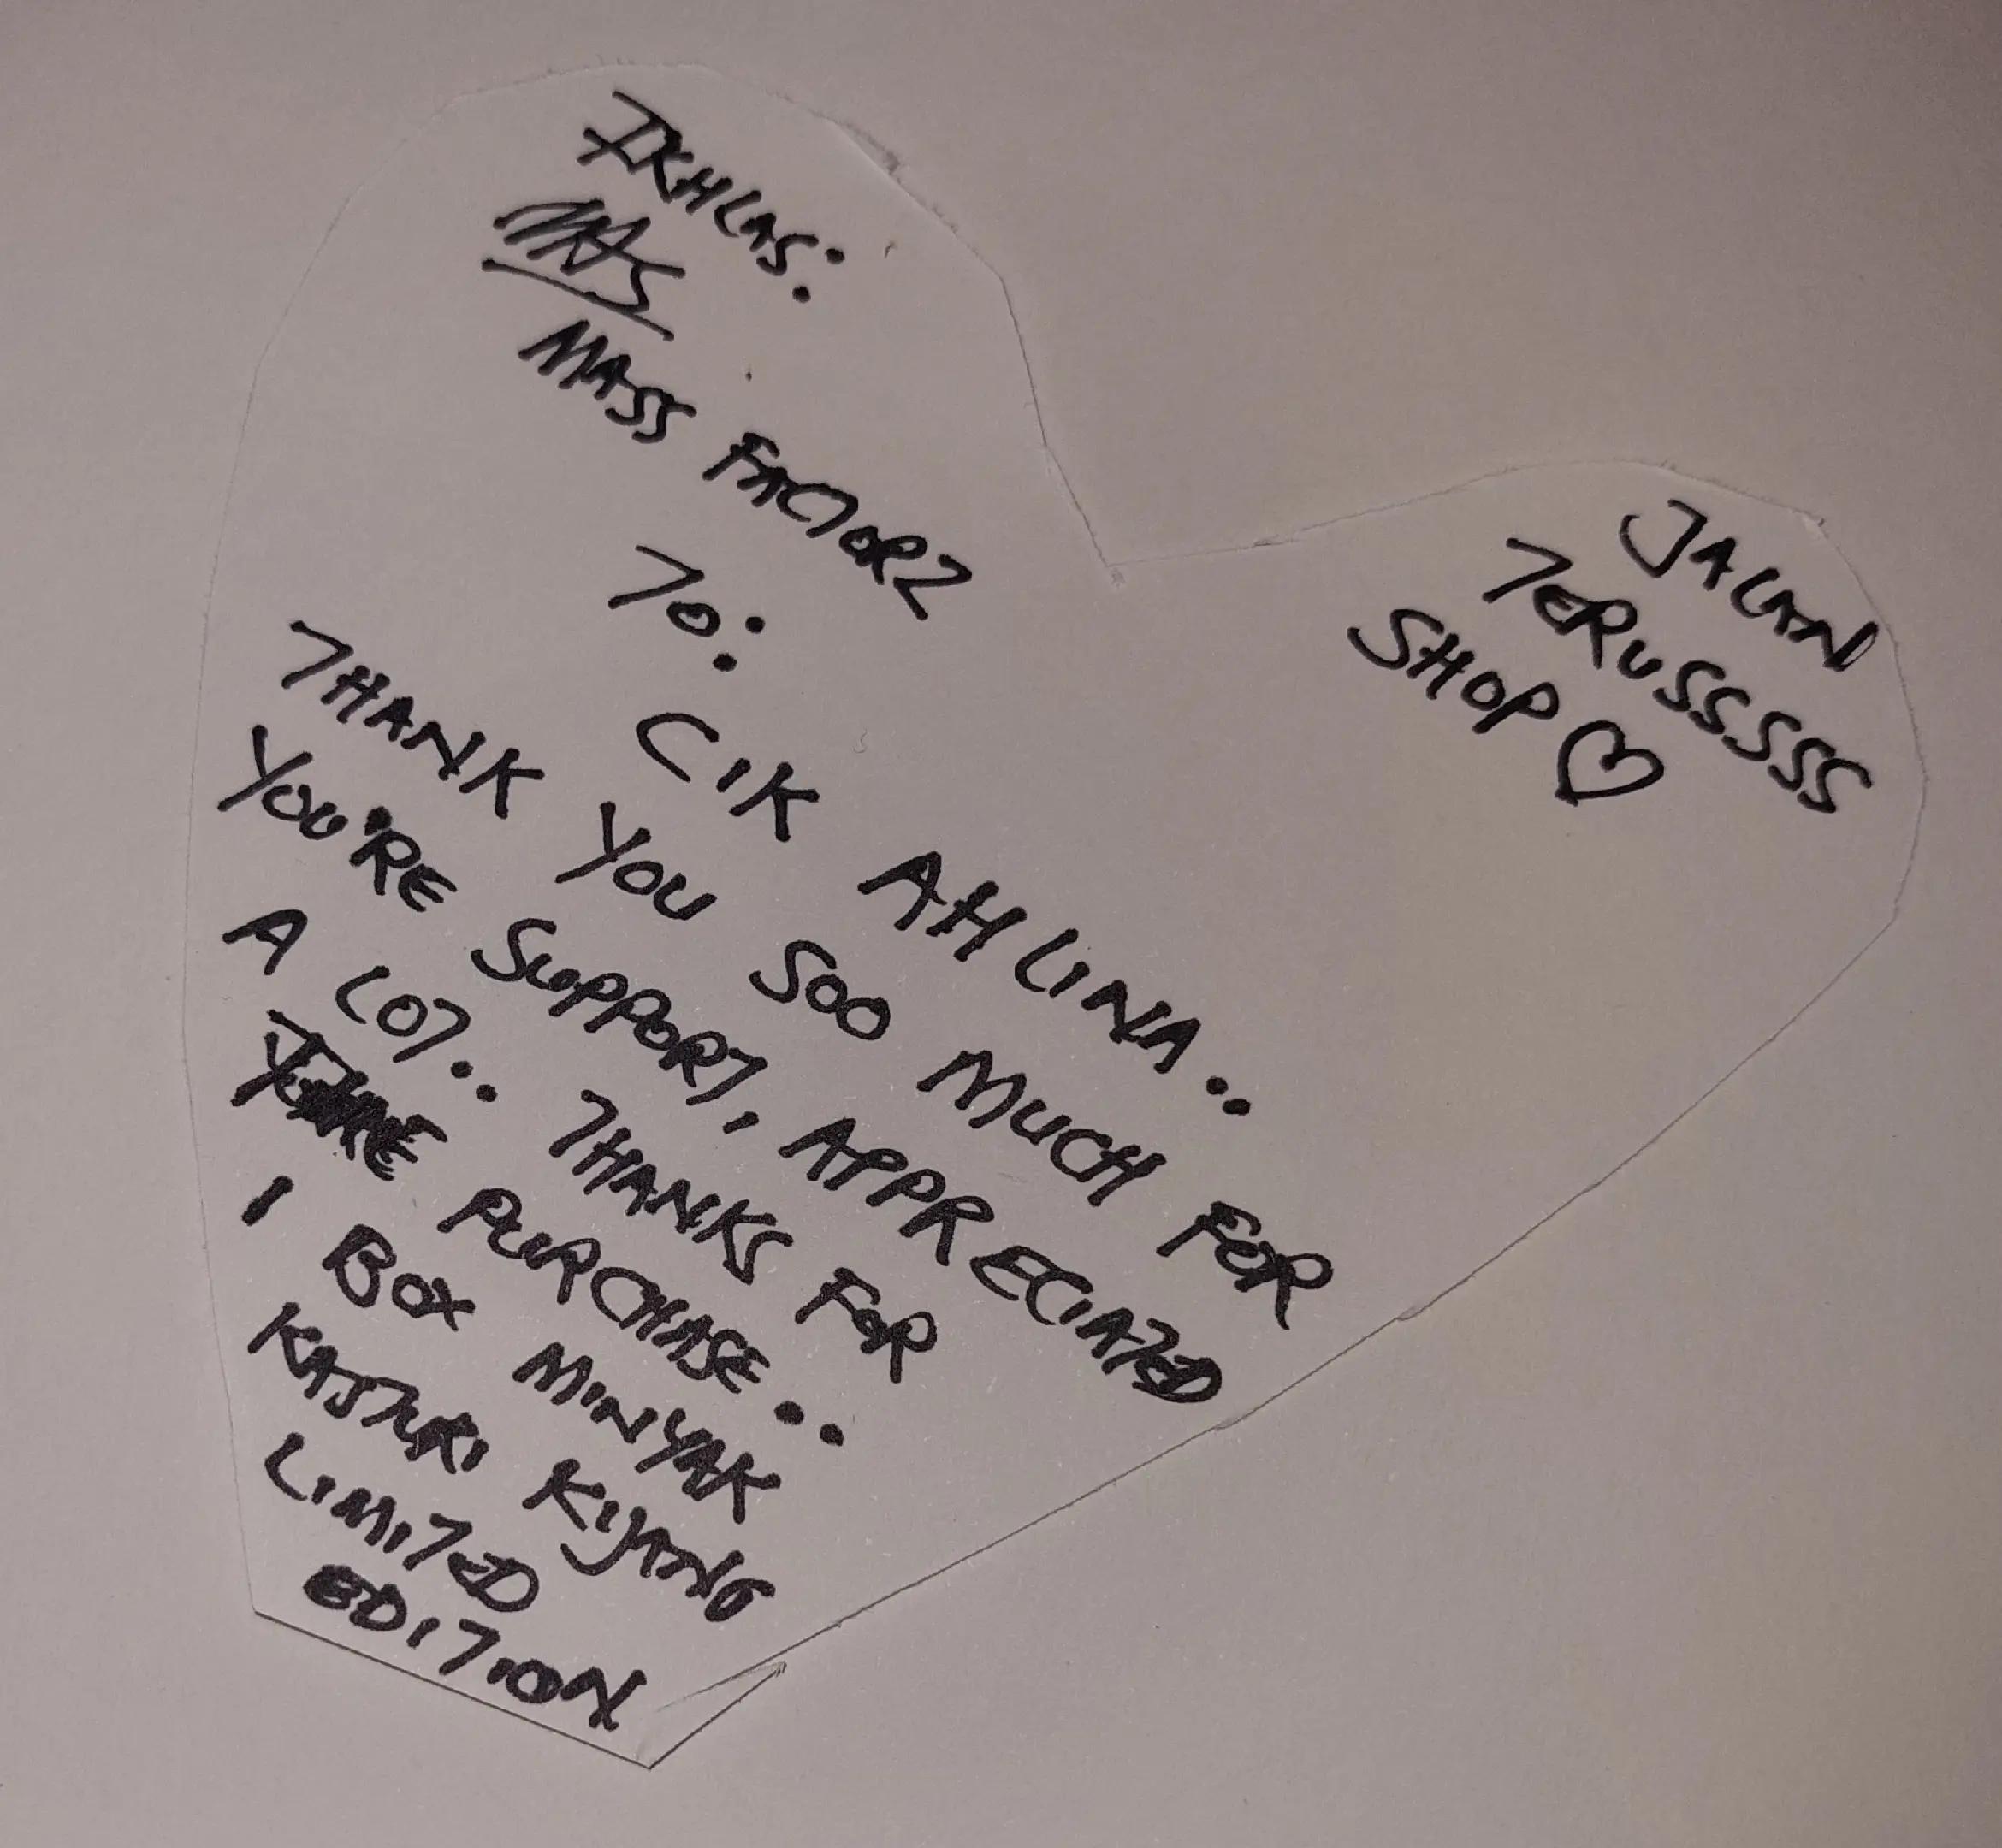 IKHLAS:
MASS FACTORZ
TO:
CIK AHLINA..
THANK YOU SOO MUCH FOR
YOU'RE SUPPORT, APPRECIATED
A LOT.. THANKS FOR
PURCHASE..
1 BOX MINYAK
KASTURI KIJANG
LIMITED
EDITION
JALAN
TERUSSSSS
SHOP ♡